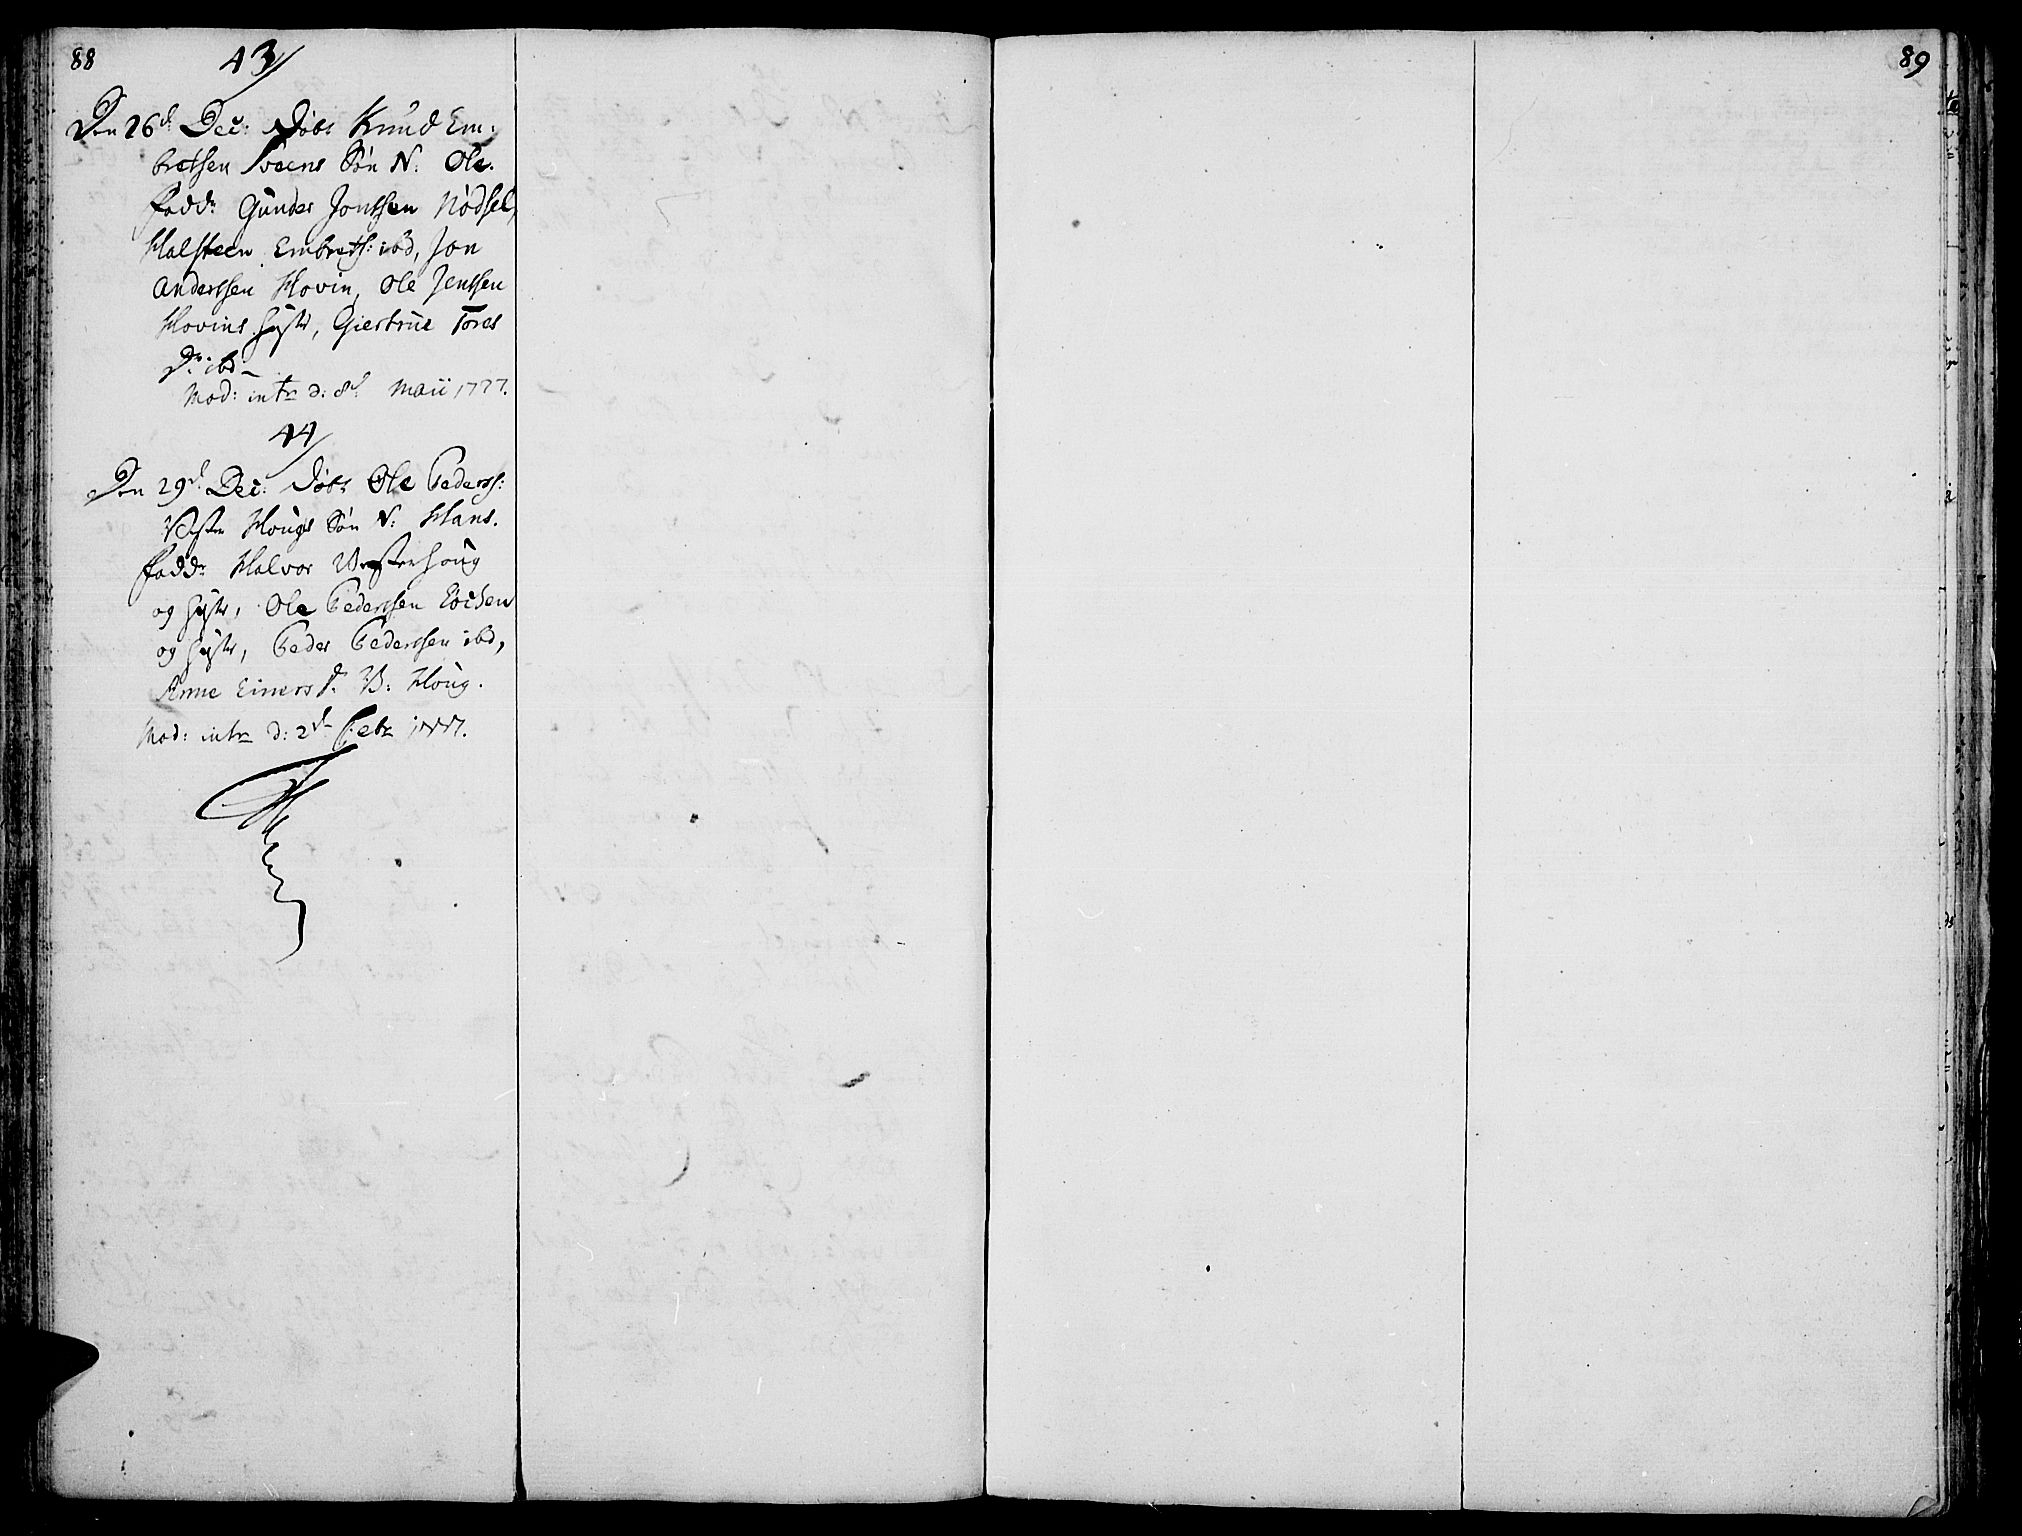 88
43/
Den 26de Dec: Døbt Knud Em-
bretsen Sveens Søn N: Ole.
Fadd: Gunder Jonsen Nødsel,
Halsteen Embrets: ibd, Jon
Andersen Hovin, Ole Jensen
Hovins Hustr, Giertrue Tores
Dr: ibd-
Mod: intr d: 8de Maii 1777.
44/
Den 29de Dec: Døbt Ole Peders:
Vester Hougs Søn N: Hans.
Fadd: Halvor Vesterhoug
og Hustr, Ole Pedersen
og Hustr, Peder Pedersen ibd,
Anne Einers D. V: Houg.
Mod: intr d: 2de Febr 1777.
89